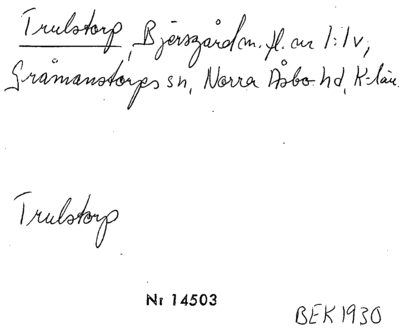 Trulstorp, Bjersgård m. fl. nr 1:1 v,
Gråmanstorps sn, Norra Åsbo hd, K-län.
Trulstorp
Nr 14503
BEK 1930